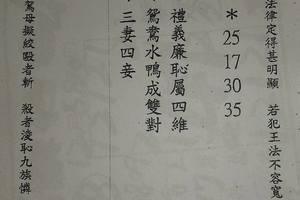 法律定得甚明顯 若犯王法不容寬
* 25 17 30 35
禮義廉恥屬四維
鴛鴦水鴨成雙對
三妻四妾
母擬絞毆者斬 殺者淩恥九族憐